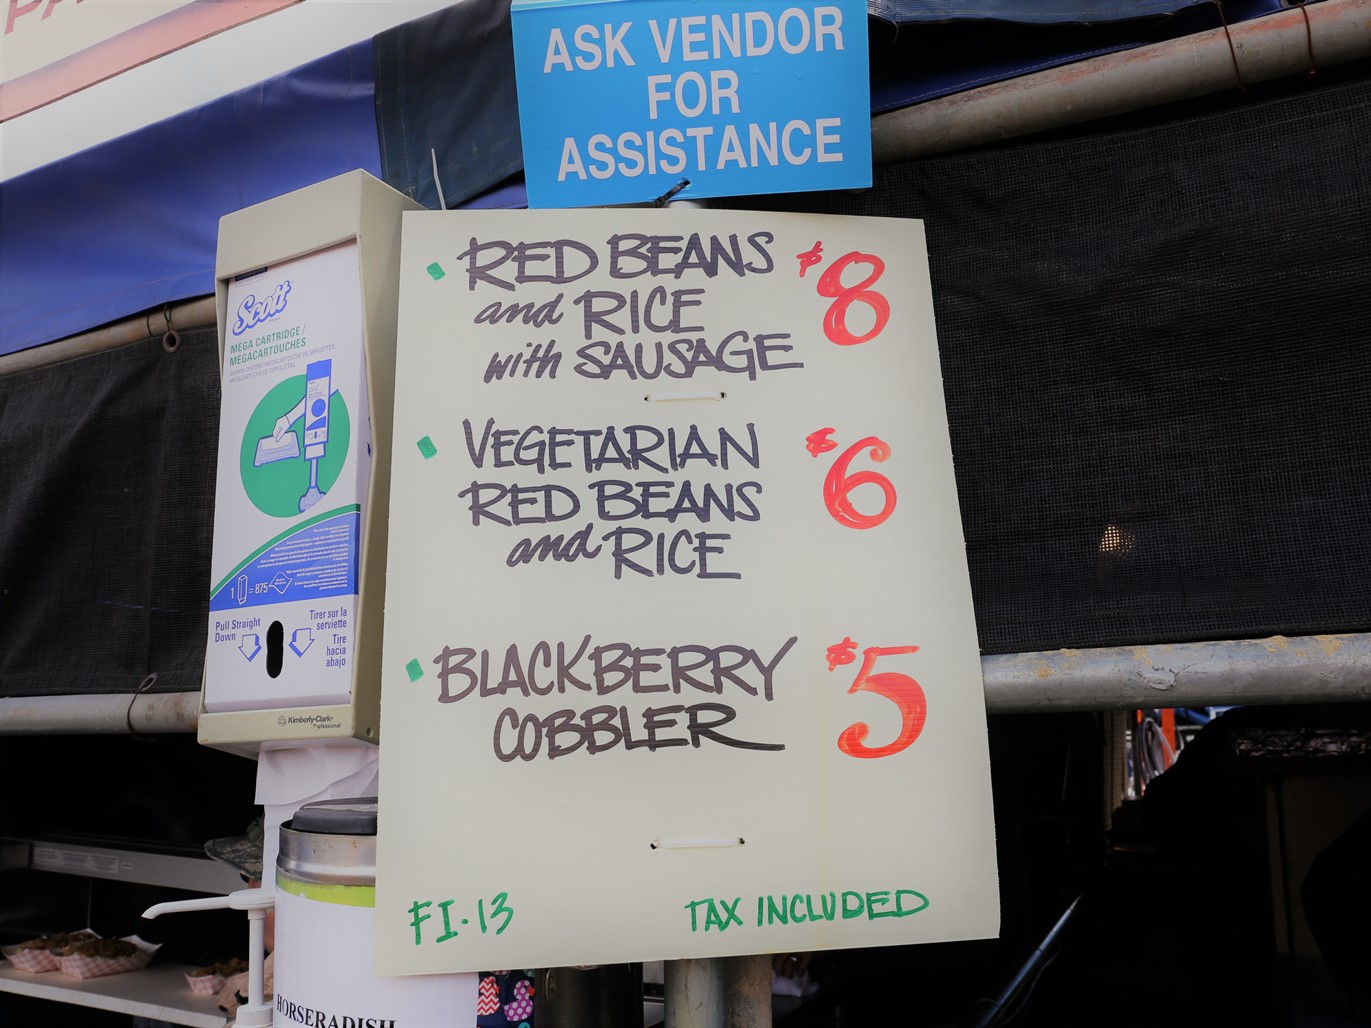 ASK VENDOR
FOR
ASSISTANCE
RED BEANS $8
and RICE
with SAUSAGE
VEGETARIAN $6
RED BEANS
and RICE
BLACKBERRY $5
COBBLER
FI-13 TAX INCLUDED
Scott
MEGA CARTRIDGE /
MEGACARTOUCHES
1 = 875
Pull Straight
Down
Tirer sur la
serviette
Tire
hacia
abajo
Kimberly-Clark
Professional
HORSERADISH